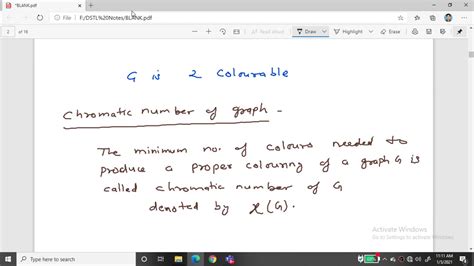 *BLANK.pdf
File
F:/DSTL%20Notes/BLANK.pdf
2
of 16
Draw
Highlight
Erase
G is 2 colourable
Chromatic number of graph -
The minimum no. of colours needed to
produce a proper colouring of a graph G is
called chromatic number of G
denoted by χ(G).
Activate Windows
Go to Settings to activate Windows.
Type here to search
11:11 AM
1/3/2021